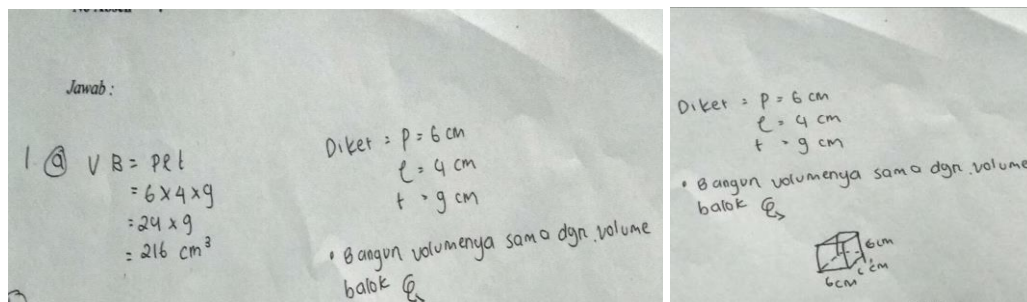 Jawab :
1. a V B = p l t
= 6 x 4 x 9
= 24 x 9
= 216 cm³
Diket = P = 6 cm
l = 4 cm
t = 9 cm
• Bangun volumenya sama dgn. volume
balok
Diket = P = 6 cm
l = 4 cm
t = 9 cm
• Bangun volumenya sama dgn. volume
balok
6cm
6cm
6cm